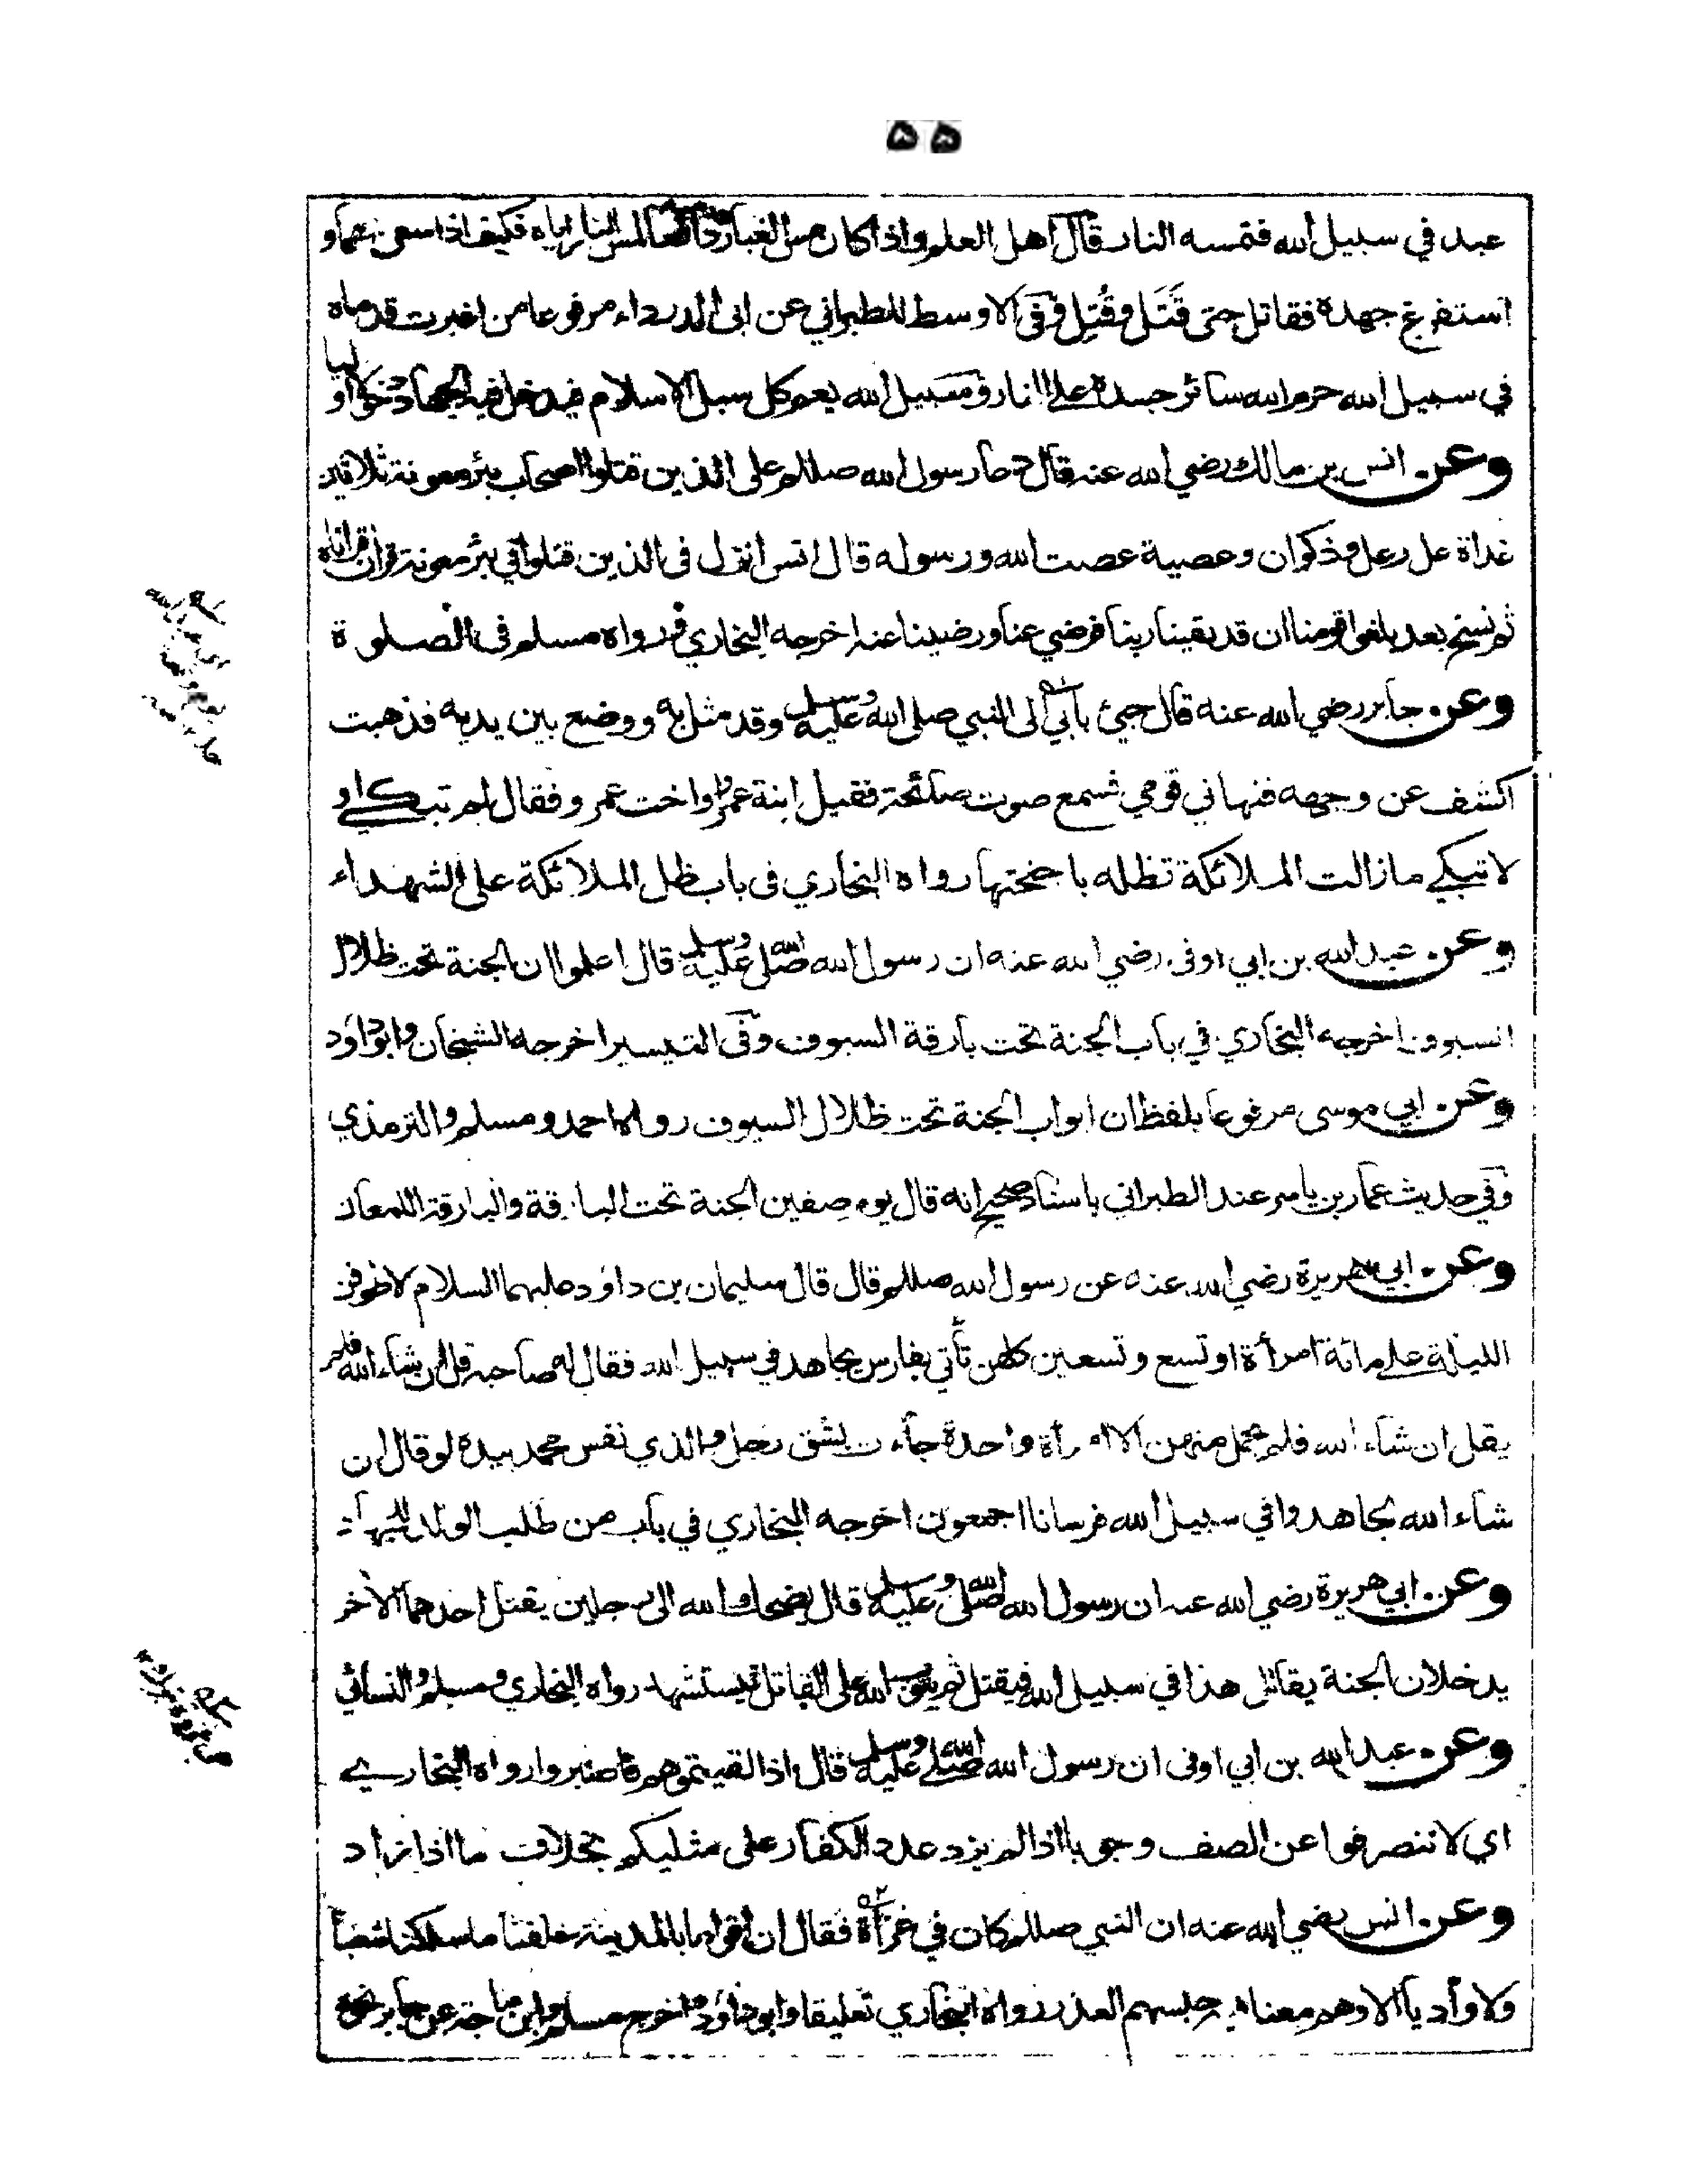 ۵۵
عبد في سبيل الله فتمسه النار قال اهل العلم واذا كان مس الغبار دافعا لمس النار اياه فكيف اذا سعى بهما و
استفرغ جهده فقاتل حتى قَتَل وقُتِل وفي الاوسط للطبراني عن ابى الدرداء مرفوعا من اغبرت قدماه
في سبيل الله حرم الله سائر جسده على النار وسبيل الله يعم كل سبل الاسلام فيدخل فيه الجهاد دخولا اوليا
وعن انس بن مالك رضي الله عنه قال دعا رسول الله صللم على الذين قتلوا اصحاب بئر معونة ثلاثين
غداة على رعل وذكوان وعصية عصت الله ورسوله قال انس انزل فى الذين قتلوا في بئر معونة قران قراناه
ثم نسخ بعد بلغوا قومنا ان قد لقينا ربنا فرضي عنا ورضينا عنه اخرجه البخاري ورواه مسلم فى الصلوة
وعن جابر رضي الله عنه قال جيئ بابي الى النبي صلى الله عليه وسلم وقد مثل به ووضع بين يديه فذهبت
اكشف عن وجهه فنهاني قومي فسمع صوت صائحة فقيل ابنة عمرو او اخت عمرو فقال لم تبكي او
لا تبكي ما زالت الملائكة تظله باجنحتها رواه البخاري فى باب ظل الملائكة على الشهداء
وعن عبد الله بن ابي اوفى رضي الله عنه ان رسول الله صلى الله عليه وسلم قال اعلموا ان الجنة تحت ظلال
السيوف اخرجه البخاري في باب الجنة تحت بارقة السيوف وفى التيسير اخرجه الشيخان وابوداود
وعن ابي موسى مرفوعا بلفظ ان ابواب الجنة تحت ظلال السيوف رواه احمد ومسلم والترمذي
وفي حديث عمار بن ياسر عند الطبراني باسناد صحيح انه قال يوم صفين الجنة تحت البارقة والبارقة اللمعان
وعن ابي هريرة رضي الله عنه عن رسول الله صللم قال قال سليمان بن داود عليهما السلام لاطوفن
الليلة على مائة امرأة او تسع وتسعين كلهن تأتي بفارس يجاهد في سبيل الله فقال له صاحبه قل ان شاء الله فلم
يقل ان شاء الله فلم يحمل منهن الا امرأة واحدة جاءت بشق رجل والذي نفس محمد بيده لو قال ان
شاء الله لجاهدوا في سبيل الله فرسانا اجمعون اخرجه البخاري في باب من طلب الولد للجهاد
وعن ابي هريرة رضي الله عنه ان رسول الله صلى الله عليه وسلم قال يضحك الله الى رجلين يقتل احدهما الآخر
يدخلان الجنة يقاتل هذا في سبيل الله فيقتل ثم يتوب الله على القاتل فيستشهد رواه البخاري ومسلم والنسائي
وعن عبد الله بن ابي اوفى ان رسول الله صلى الله عليه وسلم قال اذا لقيتموهم فاصبروا رواه البخاري
اي لا تنصرفوا عن الصف وجوبا اذا لم يزد عدد الكفار على مثليكم بخلاف ما اذا زاد
وعن انس رضي الله عنه ان النبي صللم كان في غزاة فقال ان اقواما بالمدينة خلفنا ما سلكنا شعبا
ولا واديا الا وهم معنا حبسهم العذر رواه البخاري تعليقا وابوداود واخرج مسلم وابن ماجة عن جابر نحوه